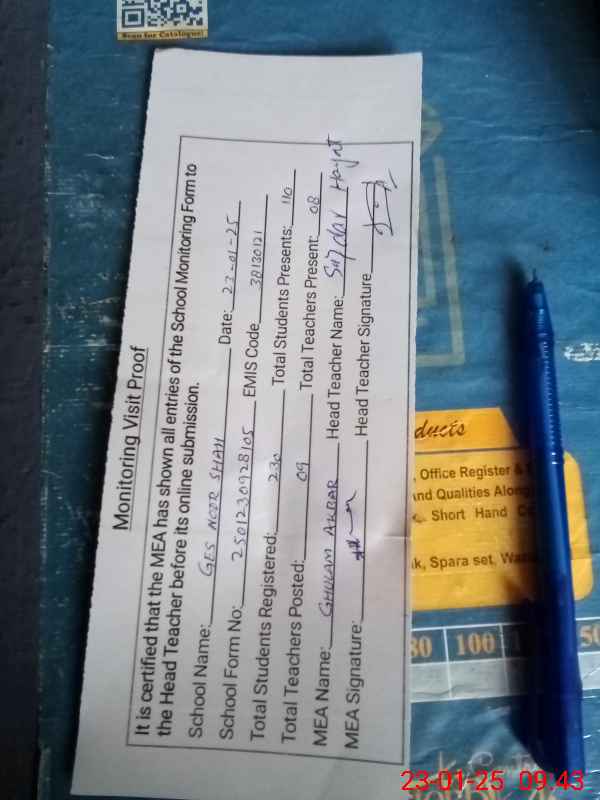 Scan for Catalogue
Monitoring Visit Proof
It is certified that the MEA has shown all entries of the School Monitoring Form to
the Head Teacher before its online submission.
School Name: GES NOOR SHAH Date: 23-01-25
School Form No: 2501230928105 EMIS Code 30130121
Total Students Registered: 230 Total Students Presents: 110
Total Teachers Posted: 09 Total Teachers Present: 08
MEA Name: GHULAM AKBAR Head Teacher Name: Hayat
MEA Signature: Head Teacher Signature
ducts
, Office Register &
nd Qualities Along
Short Hand
k, Spara set,
80 100
50
23-01-25 09:43